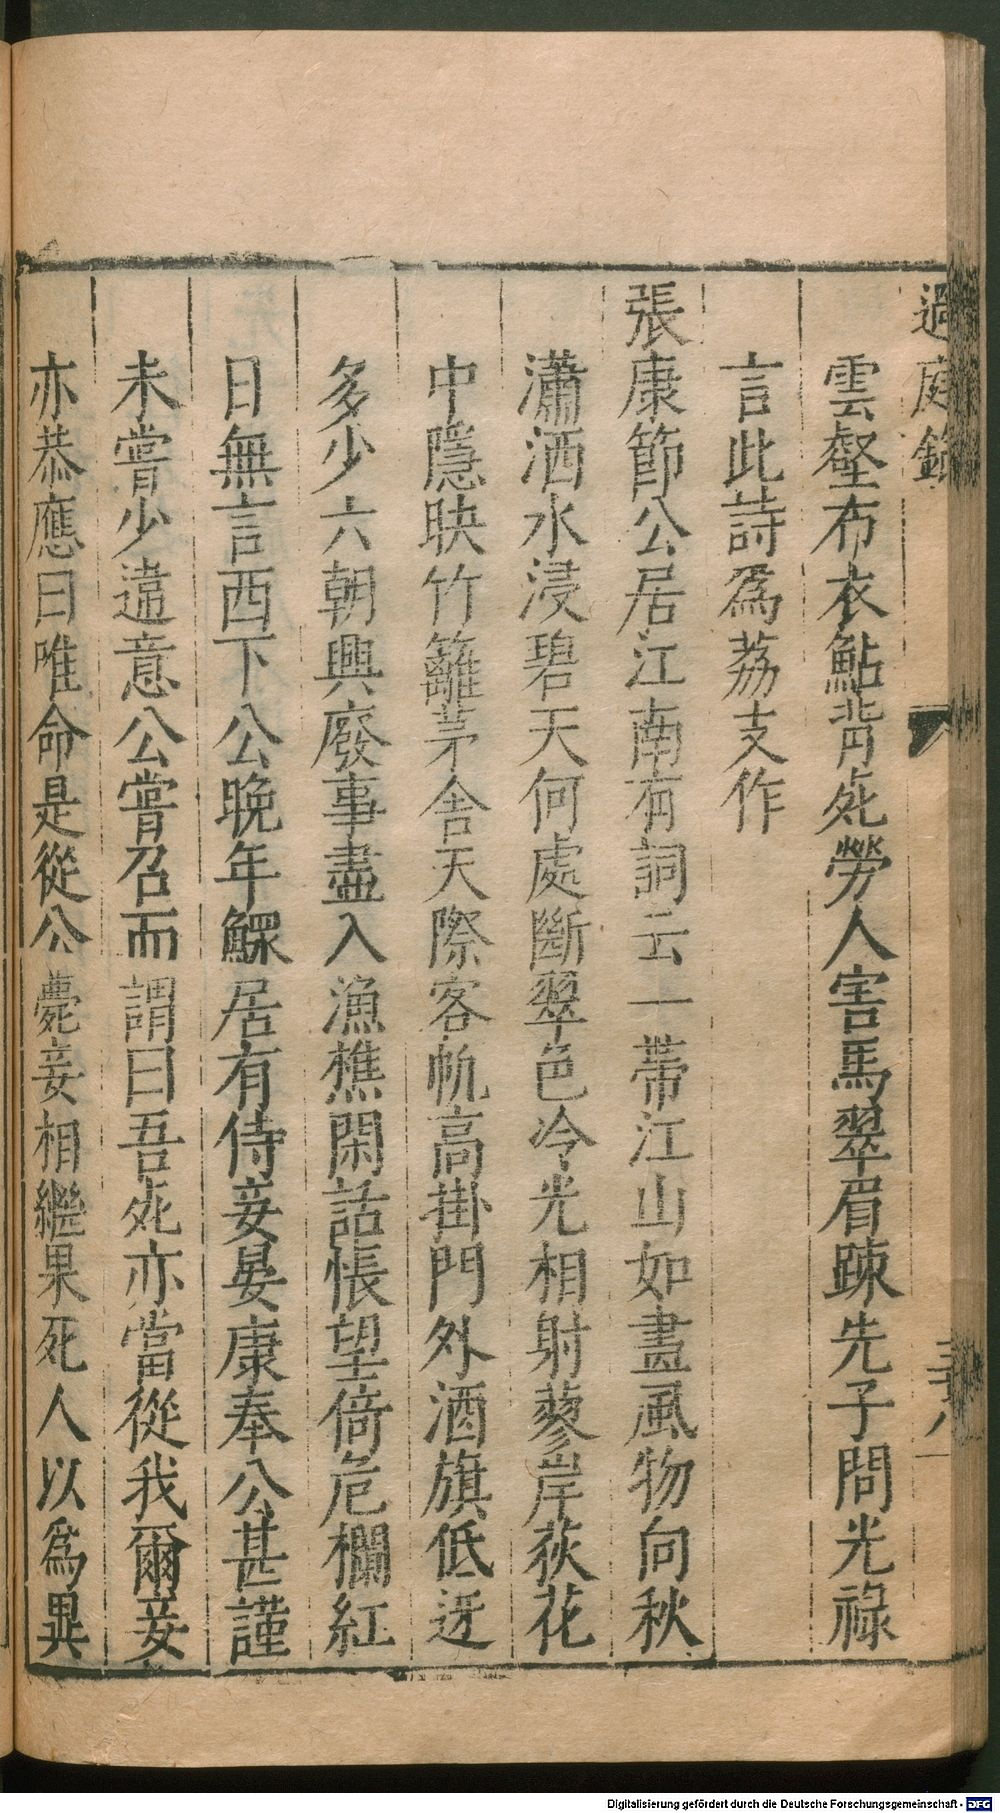 過庭錄
雲壑布衣鮐背死勞人害馬翠眉踈先子問光祿
言此詩爲荔支作
張康節公居江南有詞云一帶江山如畫風物向秋
瀟洒水浸碧天何處斷翠色冷光相射蓼岸荻花
中隱映竹籬茅舍天際客帆高掛門外酒旗低迓
多少六朝興廢事盡入漁樵閑話悵望倚危欄紅
日無言西下公晚年鰥居有侍妾晏康奉公甚謹
未嘗少違意公嘗召而謂曰吾死亦當從我爾妾
亦恭應曰唯命是從公薨妾相繼果死人以爲異
Digitalisierung gefördert durch die Deutsche Forschungsgemeinschaft - DFG